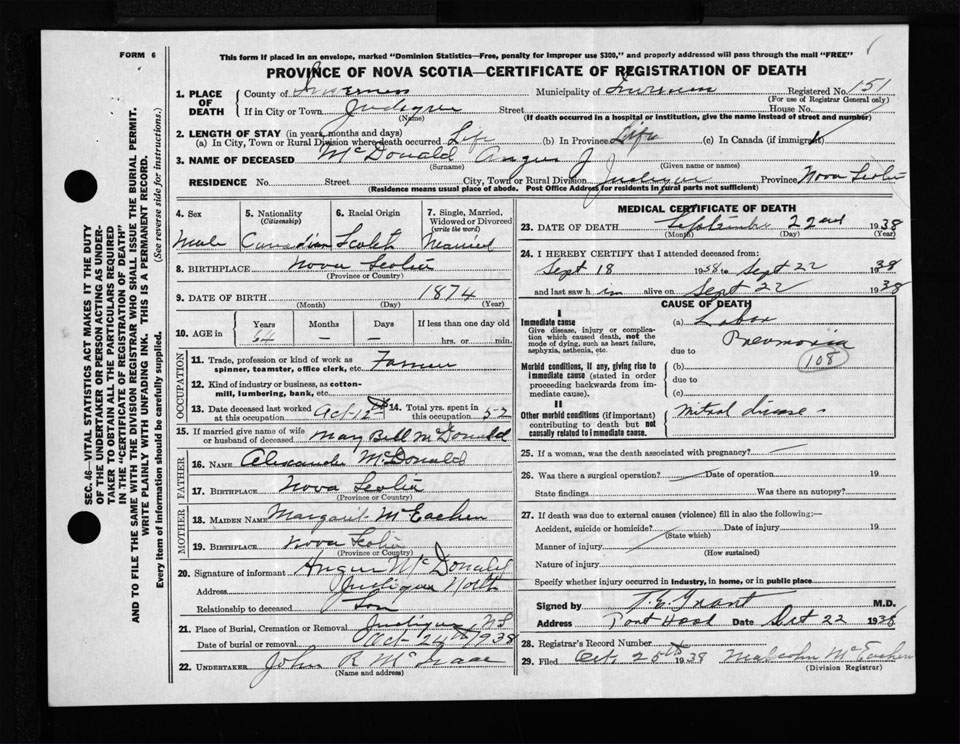 FORM 6
This form if placed in an envelope, marked "Dominion Statistics—Free, penalty for improper use $300," and properly addressed will pass through the mail "FREE"
PROVINCE OF NOVA SCOTIA—CERTIFICATE OF REGISTRATION OF DEATH
1. PLACE OF DEATH County of Inverness Municipality of Inverness Registered No. 151
(For use of Registrar General only)
If in City or Town Judique Street House No.
(Name) (If death occurred in a hospital or institution, give the name instead of street and number)
2. LENGTH OF STAY (in years, months and days)
(a) In City, Town or Rural Division where death occurred Life (b) In Province Life (c) In Canada (if immigrant)
3. NAME OF DECEASED McDonald Angus J
(Surname) (Given name or names)
RESIDENCE No. Street City, Town or Rural Division Judique Province Nova Scotia
(Residence means usual place of abode. Post Office Address for residents in rural parts not sufficient)
4. Sex Male
5. Nationality (Citizenship) Canadian
6. Racial Origin Scotch
7. Single, Married, Widowed or Divorced (write the word) Married
8. BIRTHPLACE Nova Scotia
(Province or Country)
9. DATE OF BIRTH 1874
(Month) (Day) (Year)
10. AGE in Years Months Days If less than one day old
64 – – hrs. or min.
OCCUPATION
11. Trade, profession or kind of work as spinner, teamster, office clerk, etc. Farmer
12. Kind of industry or business, as cotton-mill, lumbering, bank, etc.
13. Date deceased last worked at this occupation
14. Total yrs. spent in this occupation 52
15. If married give name of wife or husband of deceased Mary Bell McDonald
FATHER
16. NAME Alexander McDonald
17. BIRTHPLACE Nova Scotia
(Province or Country)
MOTHER
18. MAIDEN NAME Margaret McEachen
19. BIRTHPLACE Nova Scotia
(Province or Country)
20. Signature of informant Angus McDonald
Address Judique North
Relationship to deceased Son
21. Place of Burial, Cremation or Removal Judique NS
Date of burial or removal Oct 24th 1938
22. UNDERTAKER John R McIsaac
(Name and address)
MEDICAL CERTIFICATE OF DEATH
23. DATE OF DEATH September 22nd 1938
(Month) (Day) (Year)
24. I HEREBY CERTIFY that I attended deceased from:
Sept 18 1938 to Sept 22 1938
and last saw h im alive on Sept 22 1938
CAUSE OF DEATH
I
Immediate cause
Give disease, injury or complication which caused death, not the mode of dying, such as heart failure, asphyxia, asthenia, etc.
(a) Lobar Pneumonia
due to
108
Morbid conditions, if any, giving rise to immediate cause (stated in order proceeding backwards from immediate cause).
(b)
due to
(c)
II
Other morbid conditions (if important) contributing to death but not causally related to immediate cause.
Mitral disease
25. If a woman, was the death associated with pregnancy?
26. Was there a surgical operation? Date of operation 19
State findings Was there an autopsy?
27. If death was due to external causes (violence) fill in also the following:—
Accident, suicide or homicide? Date of injury 19
(State which)
Manner of injury
(How sustained)
Nature of injury
Specify whether injury occurred in industry, in home, or in public place
Signed by T. E. Grant M.D.
Address Port Hood Date 22 19
28. Registrar's Record Number
29. Filed Oct. 25th 1938 Malcolm McEachen
(Division Registrar)
SEC. 46—VITAL STATISTICS ACT MAKES IT THE DUTY
OF THE UNDERTAKER OR PERSON ACTING AS UNDER-
TAKER TO OBTAIN ALL THE PARTICULARS REQUIRED
IN THE "CERTIFICATE OF REGISTRATION OF DEATH"
AND TO FILE THE SAME WITH THE DIVISION REGISTRAR WHO SHALL ISSUE THE BURIAL PERMIT.
WRITE PLAINLY WITH UNFADING INK. THIS IS A PERMANENT RECORD.
Every item of information should be carefully supplied. (See reverse side for instructions.)